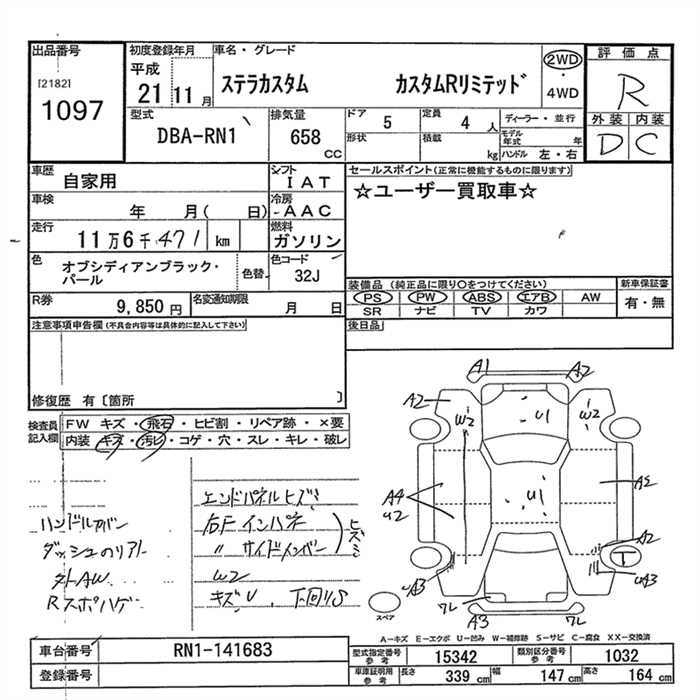 出品番号
[2182]
1097
初度登録年月
平成
21 11 月
車名・グレード
ステラカスタム カスタムRリミテッド
2WD
・
4WD
評価点
R
外装 内装
D C
型式
DBA-RN1
排気量
658
CC
ドア 5
形状
定員 4 人
積載 kg
ディーラー・並行
モデル年式 年
ハンドル 左・右
車歴
自家用
シフト
IAT
車検
年 月( 日)
冷房
AAC
走行
11万6千471 km
燃料
ガソリン
色
オブシディアンブラック・パール
色替
色コード
32J
R券
9,850 円
名変通知期限
月 日
セールスポイント(正常に機能するものに限ります)
☆ユーザー買取車☆
装備品(純正品に限り○をつけてください)
PS PW ABS エアB AW
SR ナビ TV カワ
新車保証書
有・無
後日品
注意事項申告欄(不具合内容等は具体的に記入して下さい)
修復歴 有〔箇所 〕
検査員記入欄
FW キズ・飛石・ヒビ割・リペア跡・×要
内装 キズ・汚レ・コゲ・穴・スレ・キレ・破レ
ダッシュのリアト
外AW
Rスポハゲ
エンドパネルヒズミ
右Fインパネ
〃 サイドメンバー
ヒズミ
W2
キズU、下回りS
A1
A2
A2
W2
U1
W2
A4
U2
U1
A2
A2
T
UA3
UA3
ワレ
A3
ワレ
スペア
A-キズ E-エクボ U-凹み W-補修跡 S-サビ C-腐食 XX-交換済
車台番号 RN1-141683
登録番号
型式指定番号参考 15342
類別区分番号参考 1032
車庫証明用参考 長さ 339 cm 幅 147 cm 高さ 164 cm